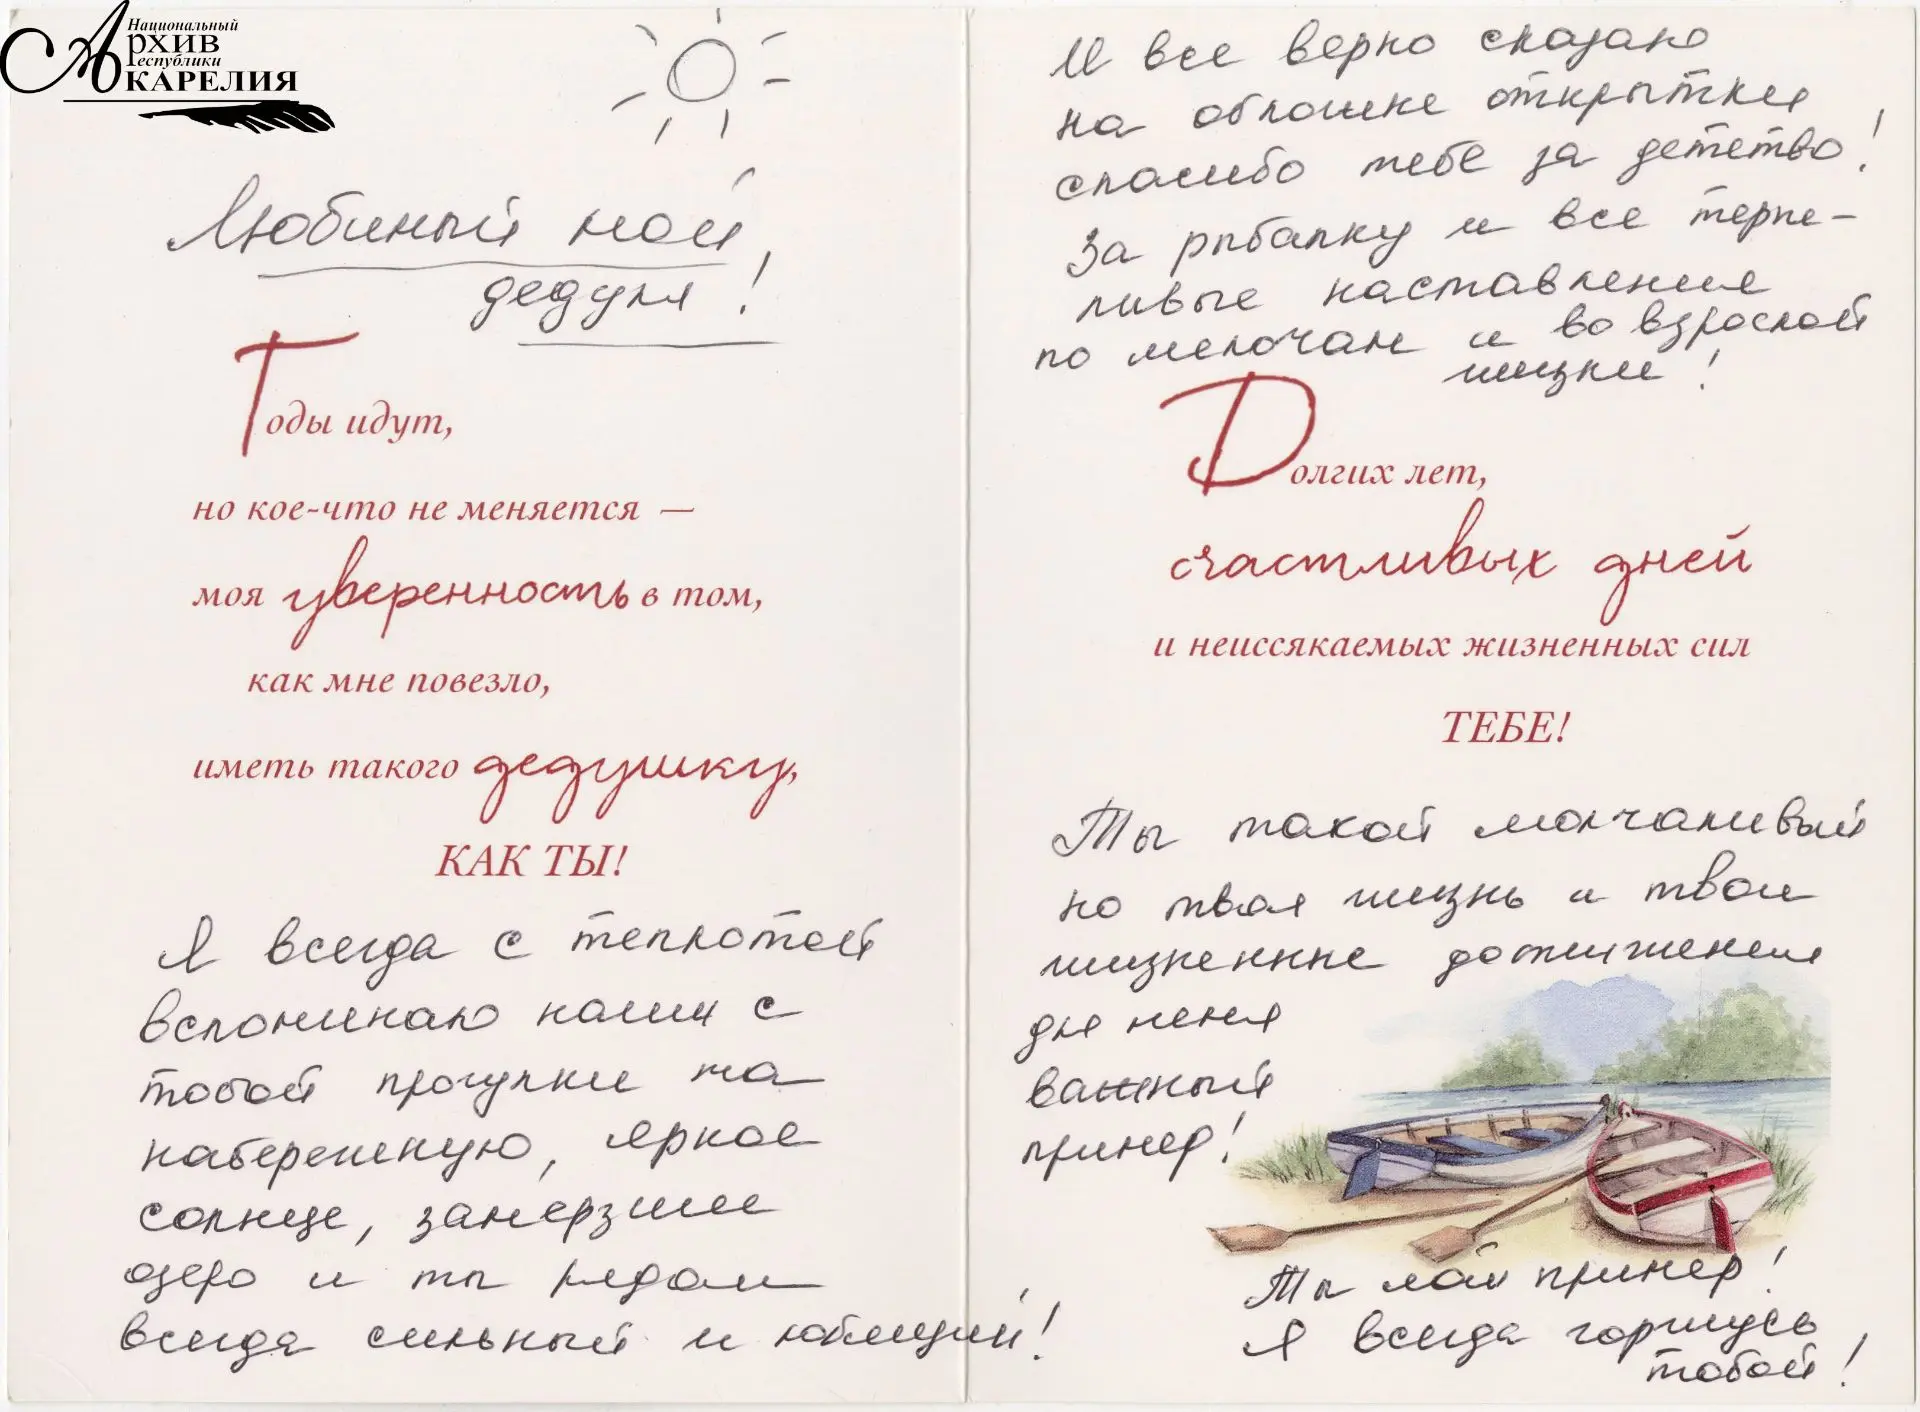 Национальный
Архив
Республики
КАРЕЛИЯ
Любимый мой
дедуля!
Годы идут,
но кое-что не меняется —
моя уверенность в том,
как мне повезло,
иметь такого дедушку,
КАК ТЫ!
Я всегда с теплотой
вспоминаю наши с
тобой прогулки на
набережную, яркое
солнце, замёрзшее
озеро и ты рядом
всегда сильный и любящий!
И все верно сказано
на обложке открытки
спасибо тебе за детство!
За рыбалку и все терпе-
ливые наставления
по мелочам и во взрослой
жизни!
Долгих лет,
счастливых дней
и неиссякаемых жизненных сил
ТЕБЕ!
Ты такой молчаливый
но твоя жизнь и твои
жизненные достижения
для меня
важный
пример!
Ты мой пример!
Я всегда горжусь
тобой!